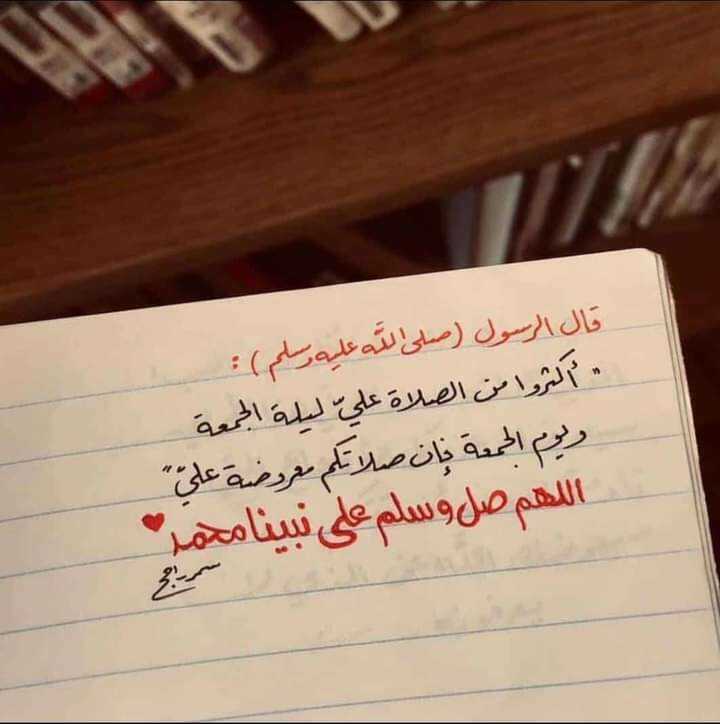 قال الرسول (صلى الله عليه وسلم) :
" أكثروا من الصلاة عليّ ليلة الجمعة
ويوم الجمعة فإن صلاتكم معروضة عليّ "
اللهم صل وسلم على نبينا محمد ♥